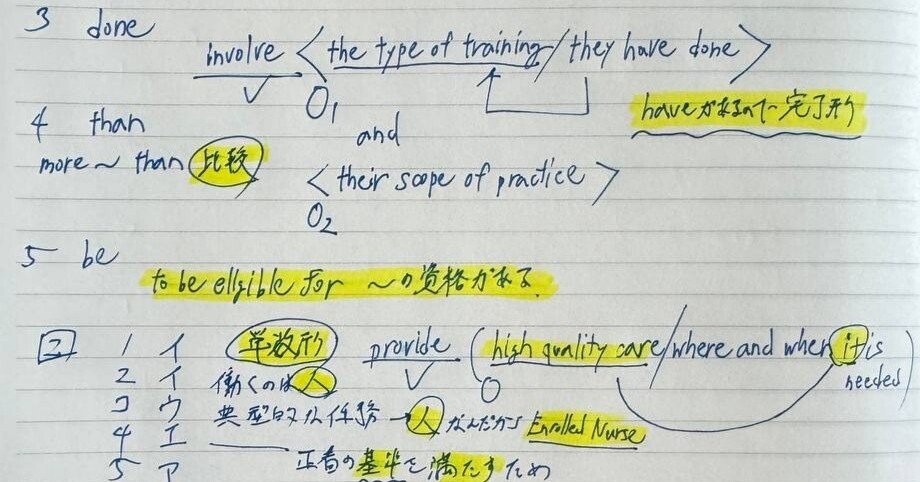 3 done
involve < the type of training / they have done >
V O1
haveがあるので完了形
4 than
and
more ~ than 比較
< their scope of practice >
O2
5 be
to be ellgible for ~の資格がある
2 1 イ 単数形 provide ( high quality care / where and when it is needed )
V O
2 イ 働くのは人
3 ウ 典型的な任務 → 人なんだから Enrolled Nurse
4 エ
5 ア 正看の基準を満たすため